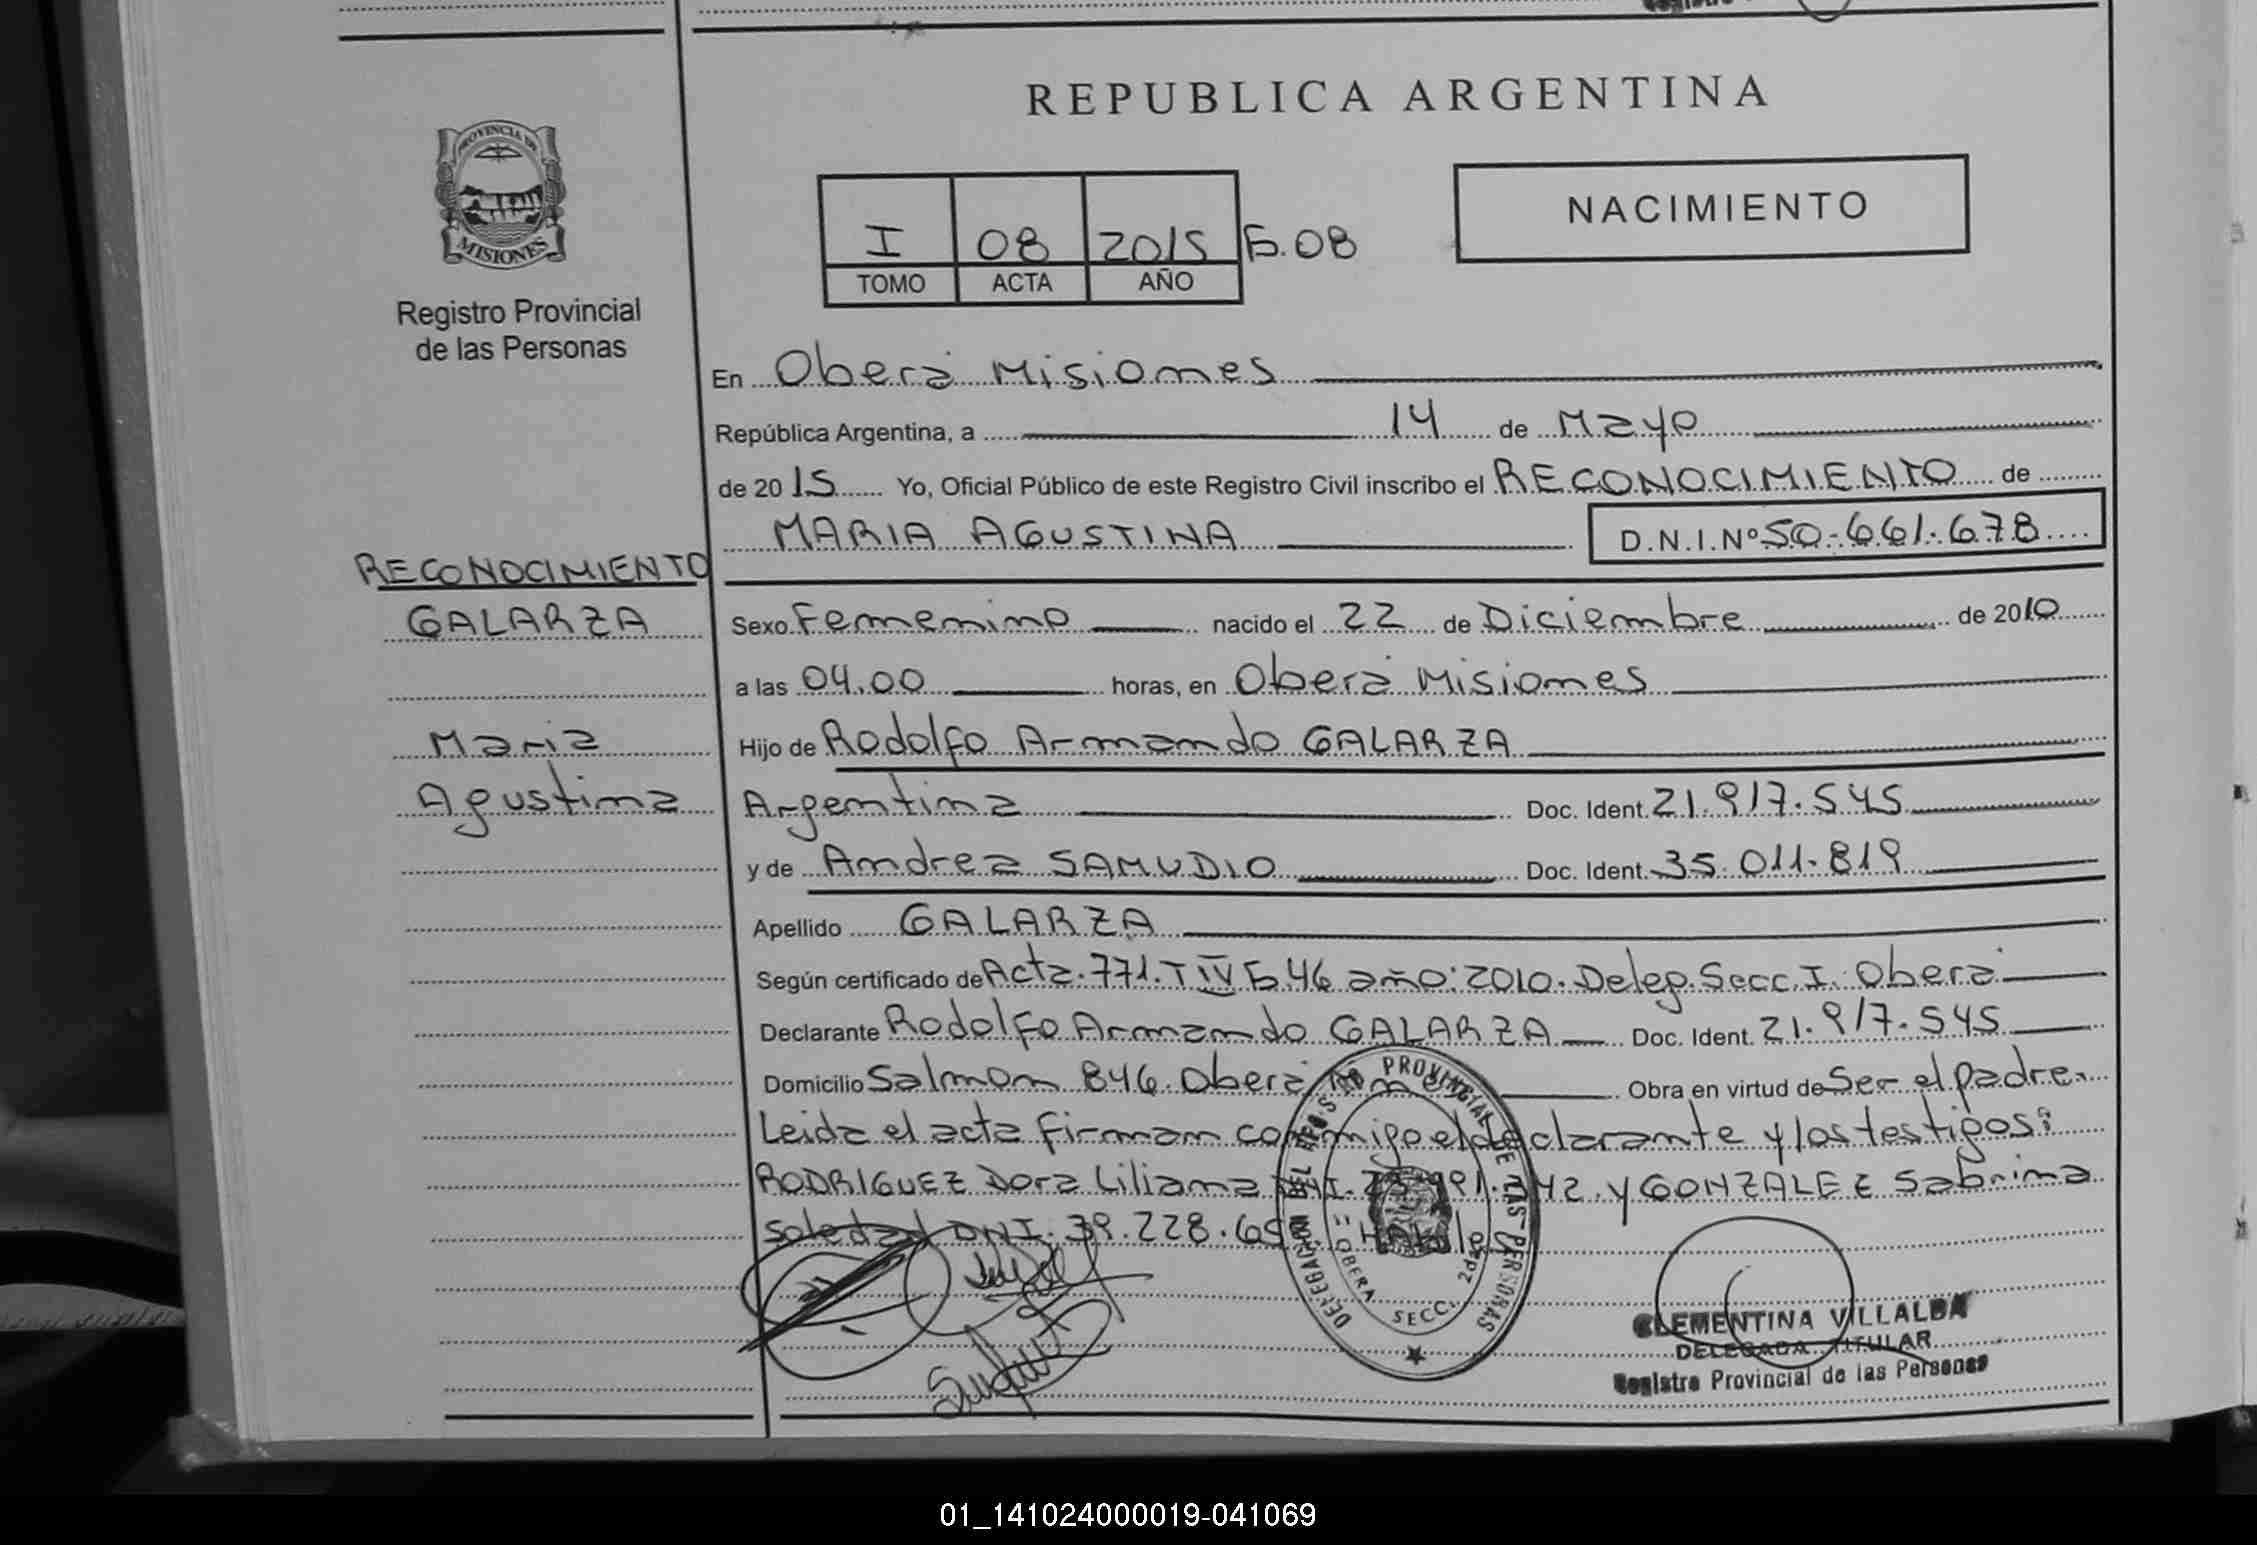 REPUBLICA ARGENTINA
PROVINCIA DE
MISIONES
Registro Provincial
de las Personas
I 08 2015 F.08
TOMO ACTA AÑO
NACIMIENTO
En Oberá Misiones
República Argentina, a 14 de Mayo
de 2015 Yo, Oficial Público de este Registro Civil inscribo el RECONOCIMIENTO de
MARIA AGUSTINA D.N.I.Nº 50.661.678
RECONOCIMIENTO
GALARZA
Maria
Agustina
Sexo Femenino nacido el 22 de Diciembre de 2010
a las 04.00 horas, en Oberá Misiones
Hijo de Rodolfo Armando GALARZA
Argentina Doc. Ident. 21.917.545
y de Andrea SAMUDIO Doc. Ident. 35.011.819
Apellido GALARZA
Según certificado de Acta.771.T IV F.46 año:2010.Deleg.Secc.I.Oberá
Declarante Rodolfo Armando GALARZA Doc. Ident. 21.917.545
Domicilio Salmon 846.Oberá Obra en virtud de Ser el padre.
Leida el acta firman conmigo el declarante y los testigos:
RODRIGUEZ Dora Liliana y GONZALEZ Sabrina
Soledad DNI.39.228.
DELEGACION DEL REGISTRO PROVINCIAL DE LAS PERSONAS
OBERA SECC. 2da
CLEMENTINA VILLALBA
DELEGADA TITULAR
Registro Provincial de las Personas
01_141024000019-041069